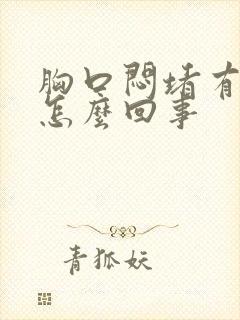 胸口悶堵有
怎麼回事
青狐妖